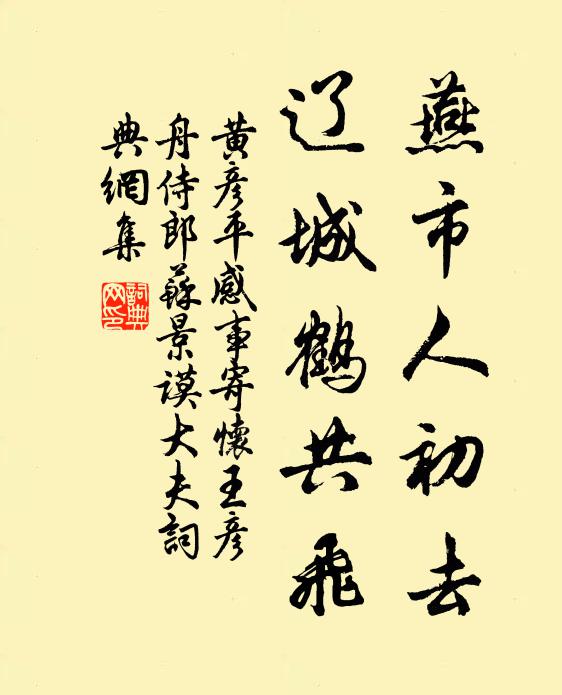 燕市人初去
辽城鹤共飛
黄彦平感事寄懷王彦
舟侍郎蘇景謨大夫詞
典網集
詞典網印